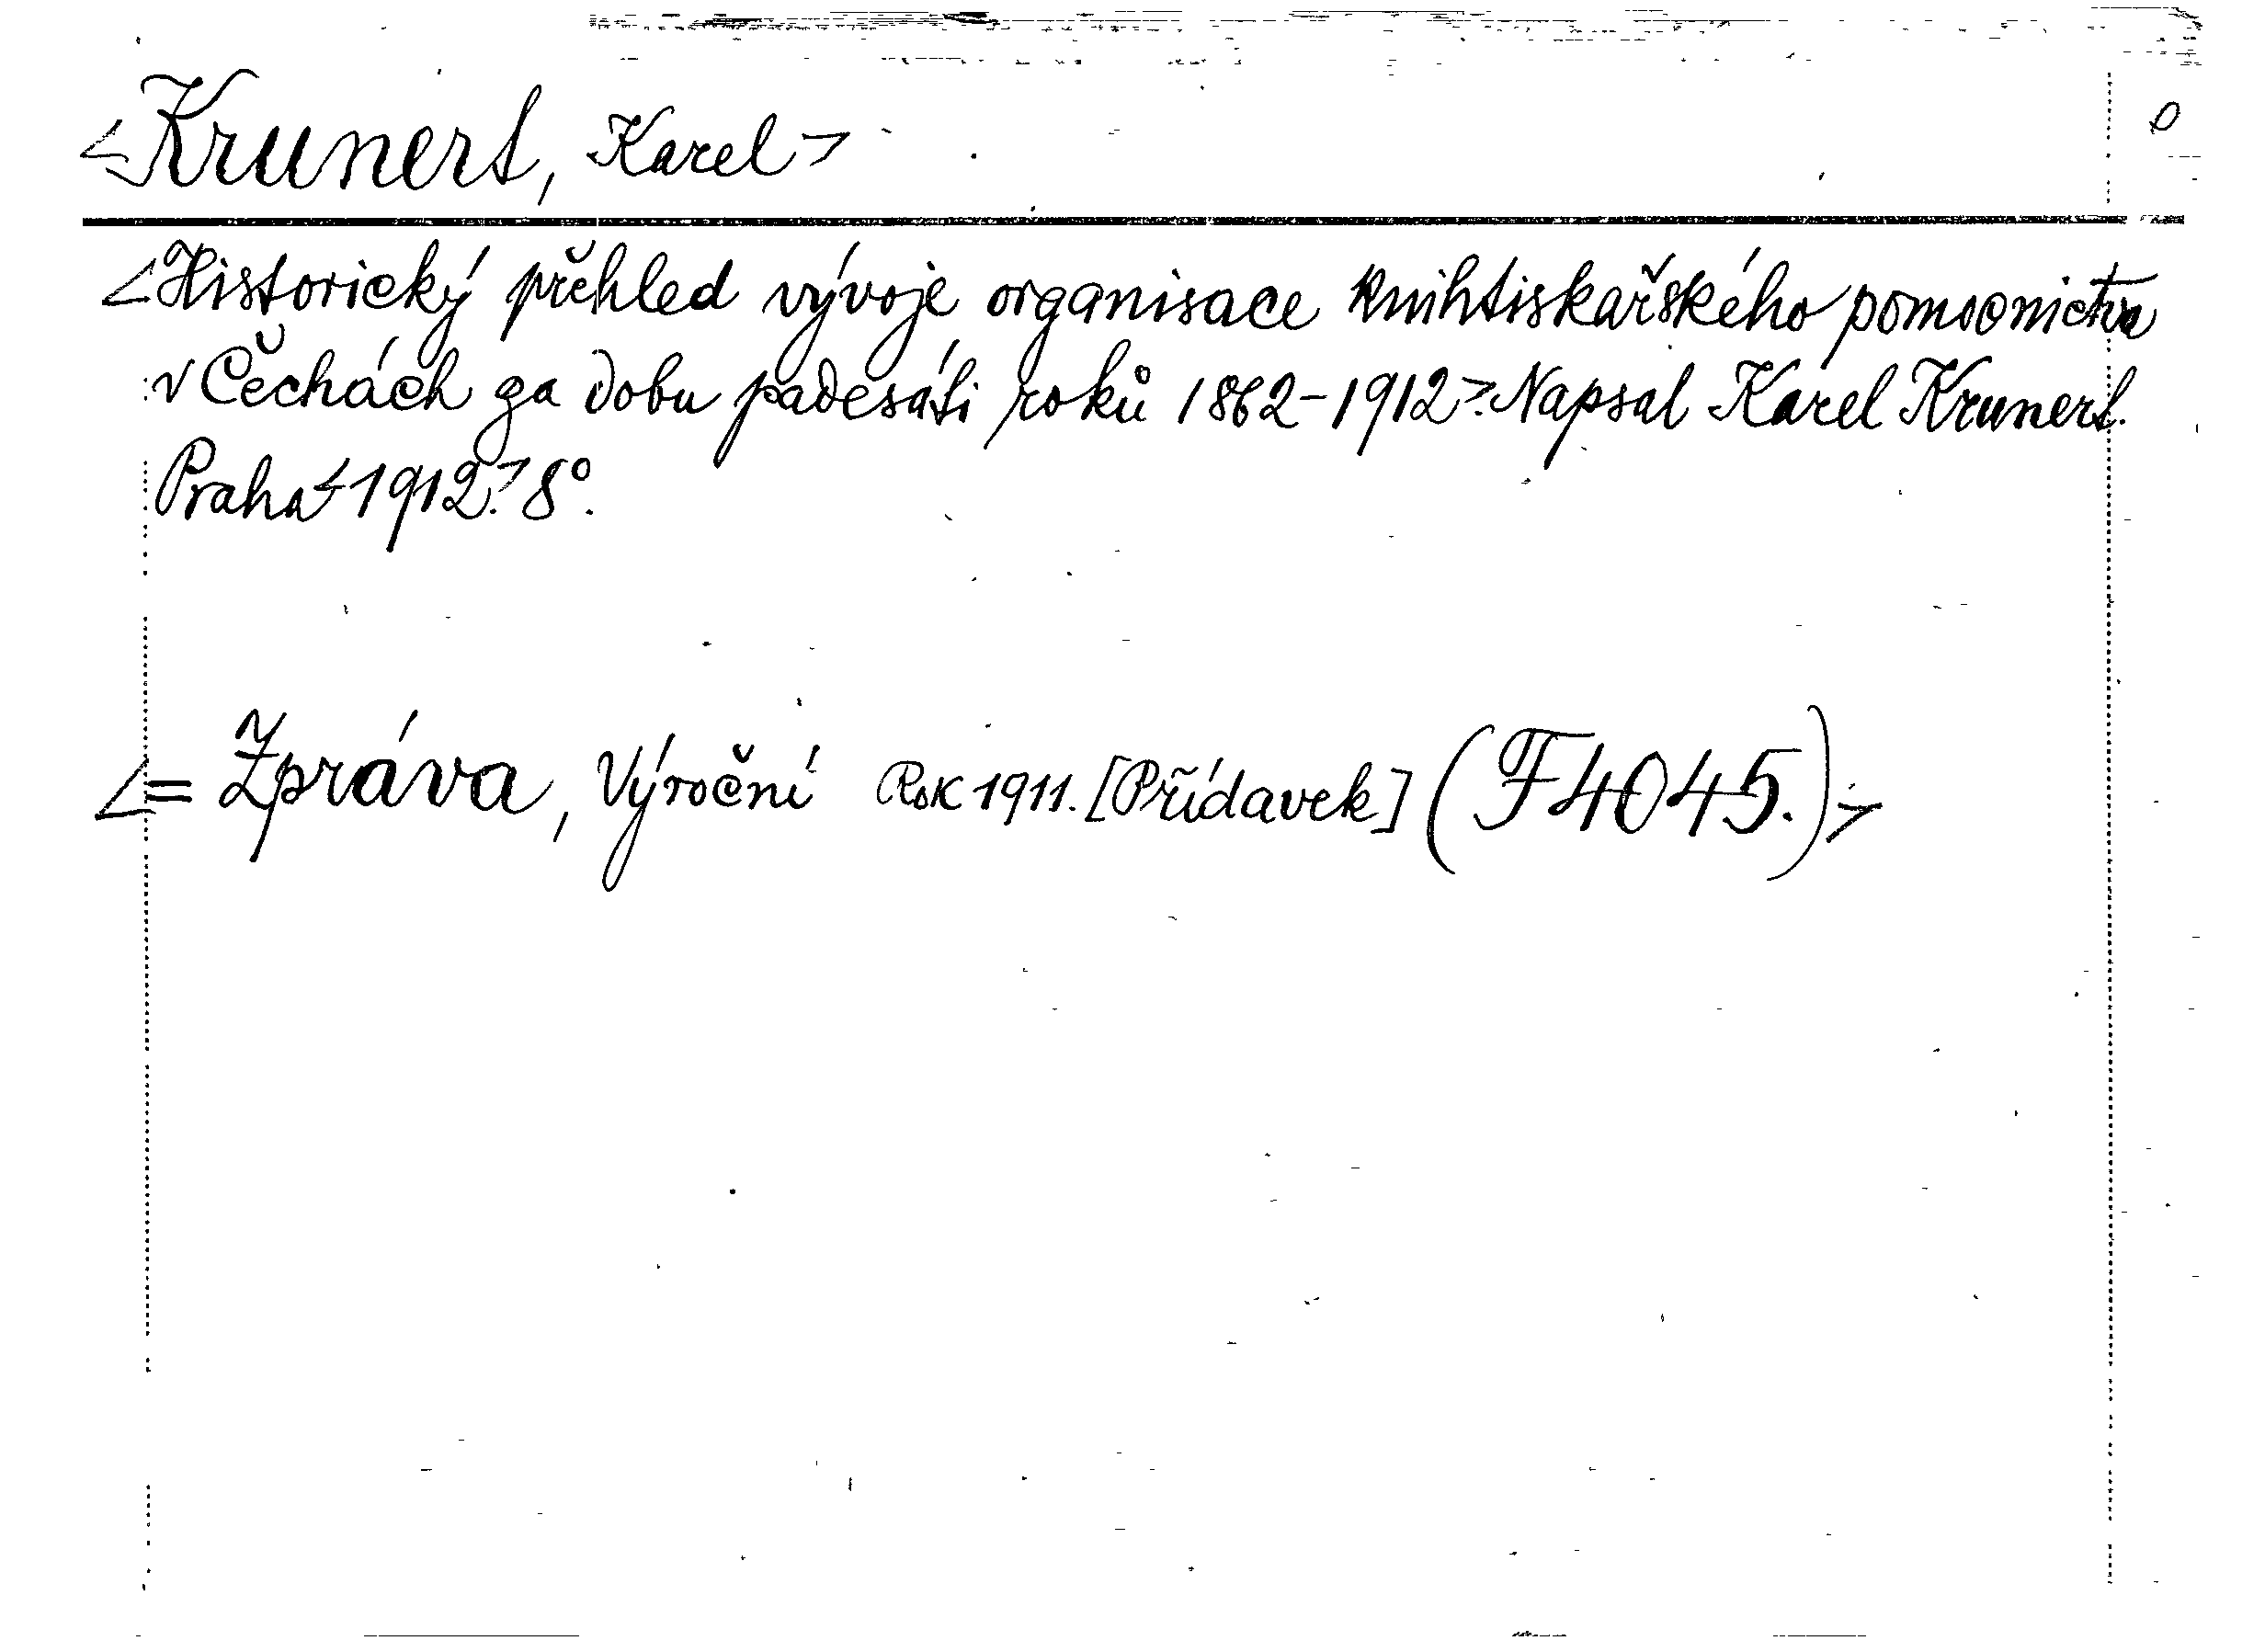 <Krunert, Karel>
<Historický přehled vývoje organisace knihtiskařského pomocnictva
v Čechách za dobu padesáti roků 1862-1912>. Napsal Karel Krunert.
Praha <1912.> 8°.
<= Zpráva, Výroční Rok 1911. [Přídavek] (F4045.)>